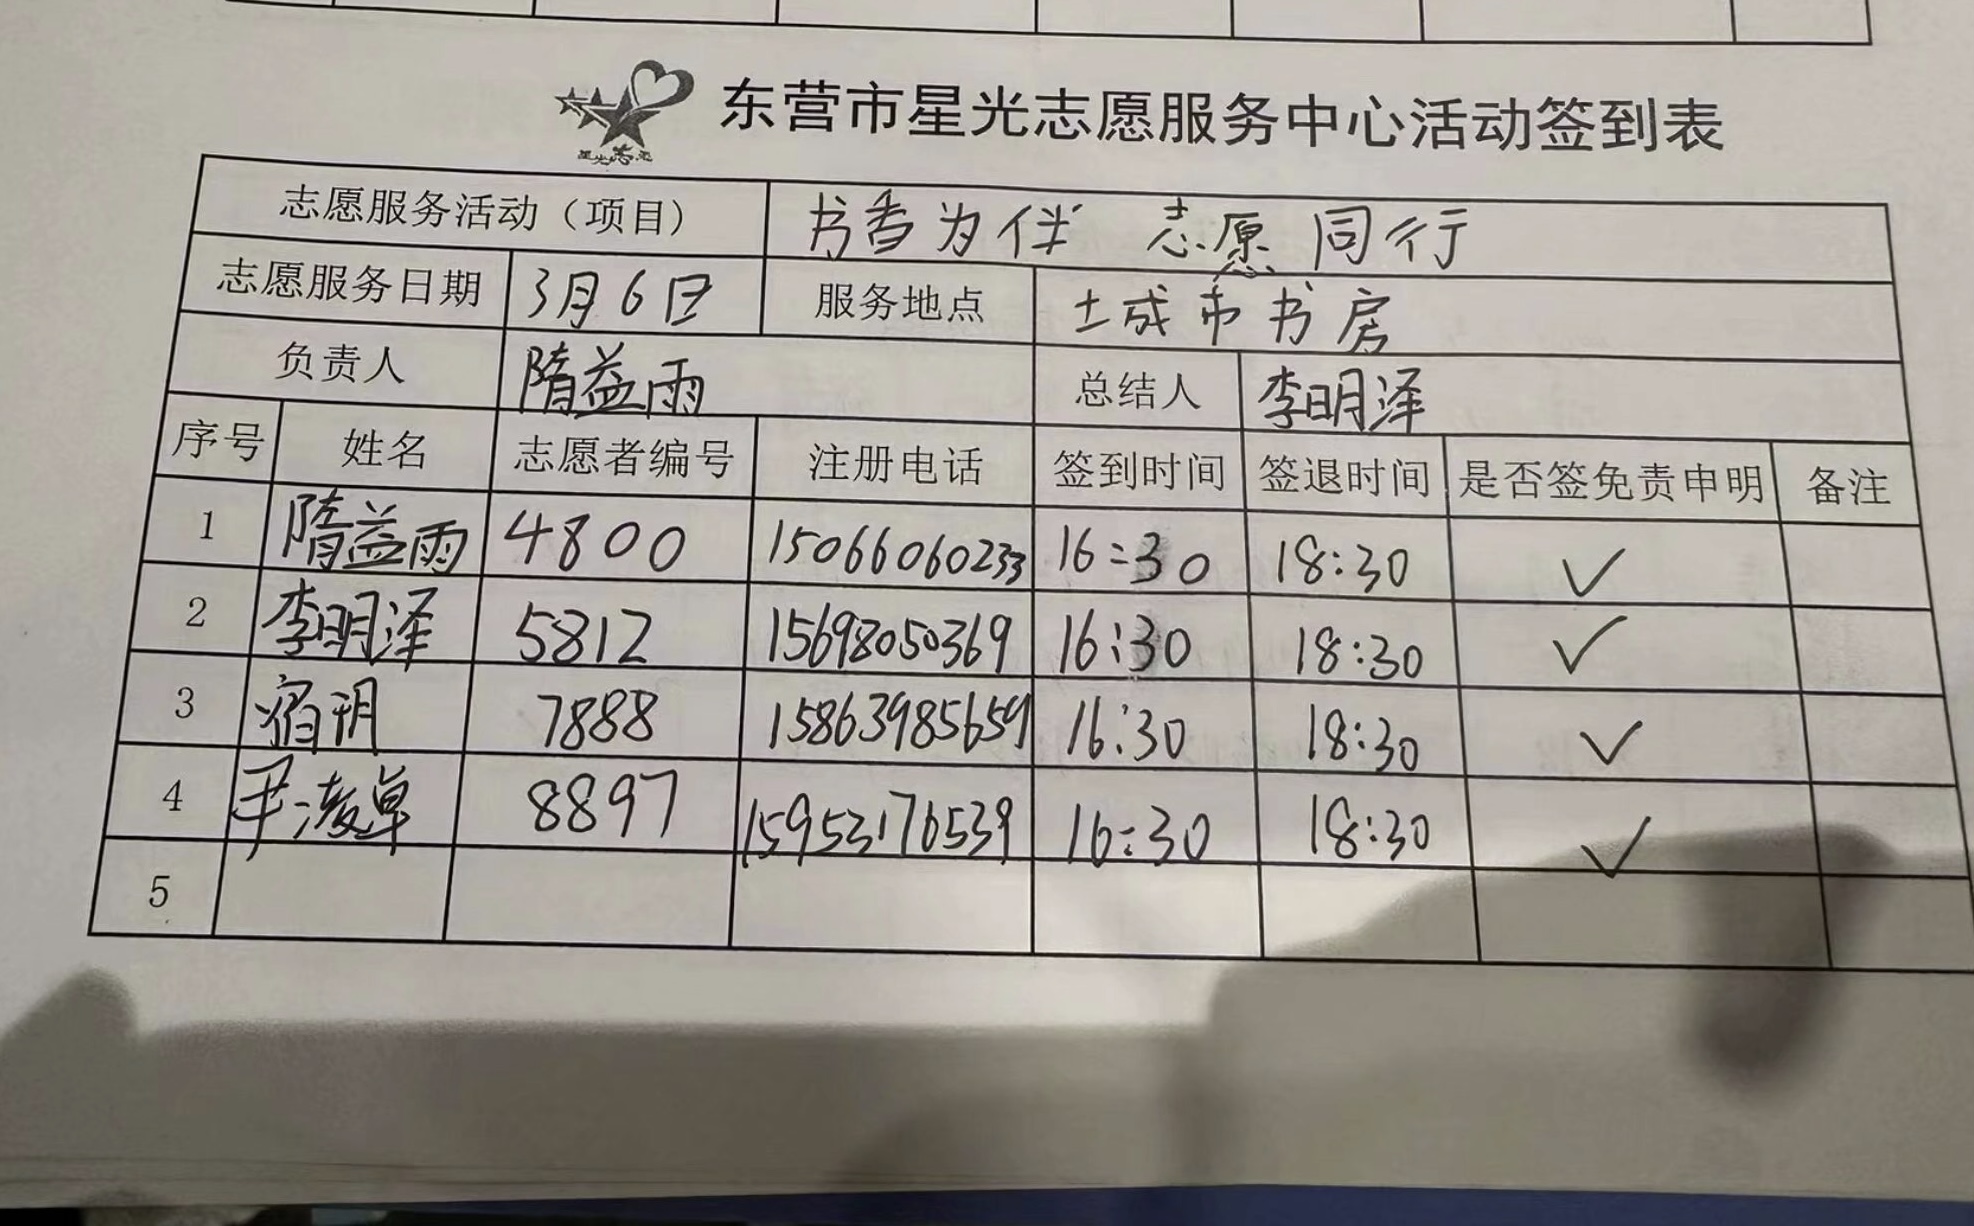 星光志愿
东营市星光志愿服务中心活动签到表
志愿服务活动（项目） 书香为伴 志愿同行
志愿服务日期 3月6日 服务地点 土城市书房
负责人 隋益雨 总结人 李明泽
序号 姓名 志愿者编号 注册电话 签到时间 签退时间 是否签免责申明 备注
1 隋益雨 4800 15066060233 16:30 18:30 ✓
2 李明泽 5812 15698050369 16:30 18:30 ✓
3 宿玥 7888 15863985659 16:30 18:30 ✓
4 尹凌卓 8897 15953176539 16:30 18:30 ✓
5